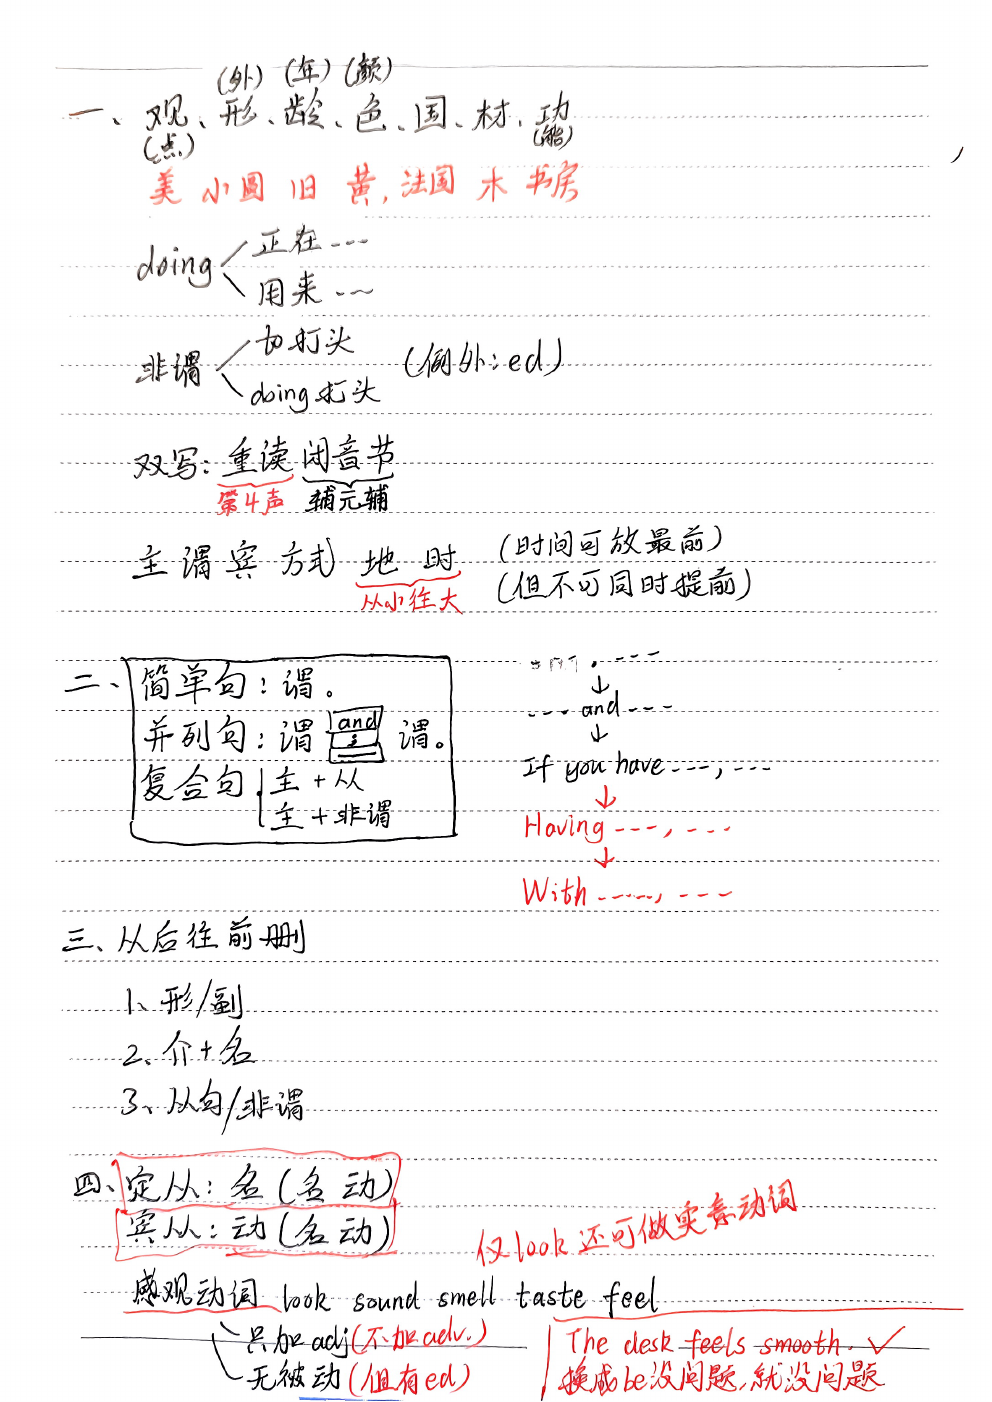 (外) (年) (颜)
一、观、形、龄、色、国、材、功
(点) (能)
美 小 圆 旧 黄, 法国 木 书房
doing 正在 ---
用来 ---
非谓 to打头 (例外: ed)
doing 打头
双写: 重读 闭音节
第4声 辅元辅
主 谓 宾 方式 地 时 (时间可放最前)
从小往大 (但不可同时提前)
二、简单句: 谓。
并列句: 谓 and ; 谓。
复合句 主 + 从
主 + 非谓
. ---
↓
--- and ---
↓
If you have ---, ---
↓
Having ---, ---
↓
With ---, ---
三、从后往前删
1、形/副
2、介 + 名
3、从句/非谓
四、定从: 名 (名 动)
宾从: 动 (名 动)
仅look还可做实意动词
感观动词 look sound smell taste feel
只加adj(不加adv.)
无被动 (但有ed)
The desk feels smooth. ✓
换成be没问题, 就没问题